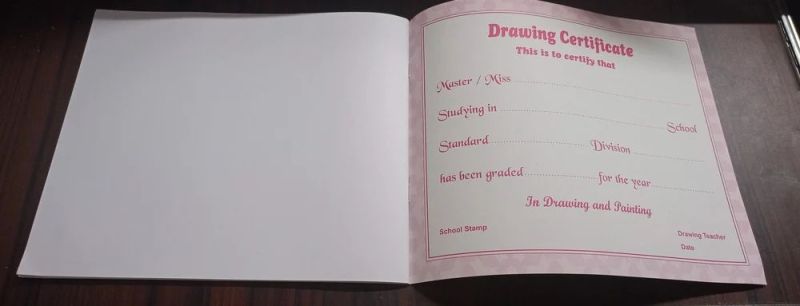 Drawing Certificate
This is to certify that
Master / Miss
Studying in School
Standard Division
has been graded for the year
In Drawing and Painting
School Stamp Drawing Teacher
Date